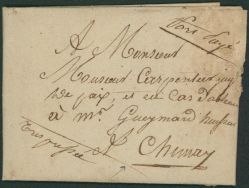 Port Payé
A Monsieur
Monsieur Carpentier juge
de paix, et en cas d'absence
à mr. Gueymard huissier
A Chimay